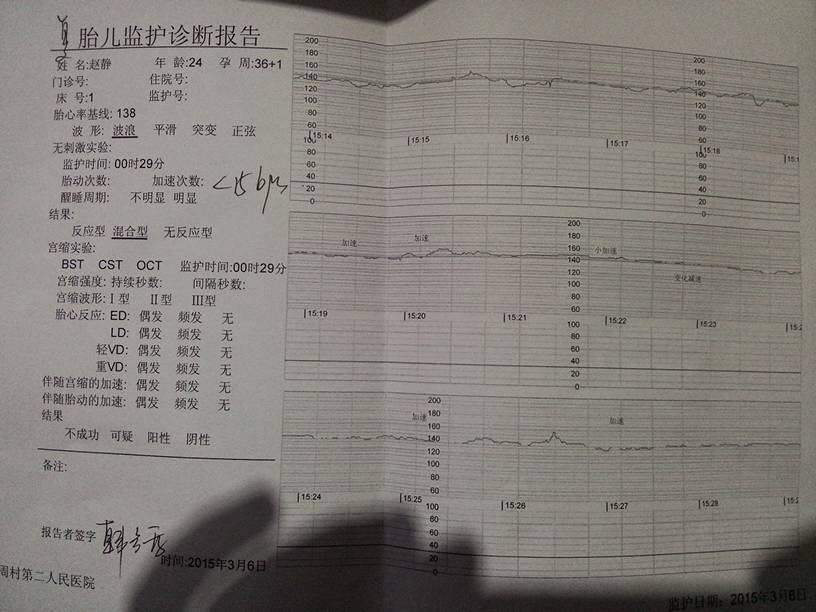 胎儿监护诊断报告
姓 名:赵静 年 龄:24 孕 周:36+1
门诊号: 住院号:
床 号:1 监护号:
胎心率基线: 138
波 形: 波浪 平滑 突变 正弦
无刺激实验:
监护时间: 00时29分
胎动次数: 加速次数: <15bpm
醒睡周期: 不明显 明显
结果:
反应型 混合型 无反应型
宫缩实验:
BST CST OCT 监护时间:00时29分
宫缩强度: 持续秒数: 间隔秒数:
宫缩波形: I 型 II 型 III型
胎心反应: ED: 偶发 频发 无
LD: 偶发 频发 无
轻VD: 偶发 频发 无
重VD: 偶发 频发 无
伴随宫缩的加速: 偶发 频发 无
伴随胎动的加速: 偶发 频发 无
结果
不成功 可疑 阳性 阴性
备注:
报告者签字
时间:2015年3月6日
周村第二人民医院
200 200
180 180
160 160
140 140
120 120
100 100
80 80
60 60
15:14 15:15 15:16 15:17 15:18
100 100
80 80
60 60
40 40
20 20
0 0
200
180
160
140
120
100
80
60
加速 加速 小加速 变化减速
15:19 15:20 15:21 15:22 15:23
100
80
60
40
20
0
200
180
160
140
120
100
80
60
加速 加速
15:24 15:25 15:26 15:27 15:28
100
80
60
40
20
0
监护日期: 2015年3月6日